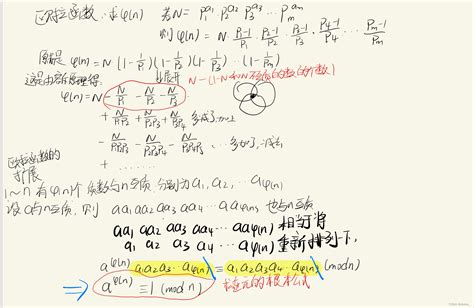 欧拉函数. 求φ(n) 若N = P₁^a₁ P₂^a₂ P₃^a₃ ... Pm^am
则 φ(n) = N · P₁-1/P₁ · P₂-1/P₂ · P₃-1/P₃ · P₄-1/P₄ ... Pm-1/Pm
原始是 φ(n) = N (1-1/P₁)(1-1/P₂)(1-1/P₃)...(1-1/Pm)
这是由容斥原理得 ↓展开 N-(1-N和N不互质的数的个数)
φ(n) = N - N/P₁ - N/P₂ - N/P₃
+ N/P₁P₂ + N/P₂P₃ + N/P₃P₄ 多减了, 加上
- N/P₁P₂P₃ - N/P₂P₃P₄ - ... 多加了, 减去
+ ......
欧拉函数的扩展
1~n 有φ(n)个 数与n互质, 分别为 a₁, a₂, ... aφ(n)
设a与n互质, 则 aa₁ aa₂ aa₃ aa₄ ... aaφ(n) 也与n互质
aa₁ aa₂ aa₃ aa₄ ... aaφ(n) 相当于将
a₁ a₂ a₃ a₄ ... aφ(n) 重新排列一下,
a^φ(n) a₁a₂a₃...aφ(n) ≡ a₁a₂a₃a₄...aφ(n) (mod n)
⇒ a^φ(n) ≡ 1 (mod n)